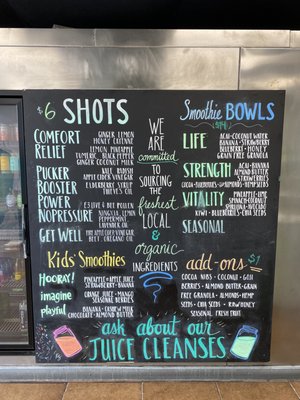 $6 SHOTS
COMFORT
RELIEF
GINGER LEMON
HONEY CAYENNE
LEMON PINEAPPLE
TUMERIC BLACK PEPPER
GINGER COCONUT MILK
PUCKER
BOOSTER
KALE RADISH
APPLE CIDER VINEGAR
ELDERBERRY SYRUP
THIEVES OIL
POWER
NOPRESSURE
NINGXIA, LEMON
PEPPERMINT,
LAVENDER OIL
GET WELL
BEET, OREGANO OIL
Kids Smoothies
HOORAY!
PINEAPPLE • APPLE JUICE
STRAWBERRY • BANANA
imagine
ORANGE JUICE • MANGO
SEASONAL BERRIES
playful
BANANA • CASHEW MILK
CHOCOLATE • ALMOND BUTTER
WE
ARE
committed
TO
SOURCING
the
freshest
LOCAL
&
organic
INGREDIENTS
Smoothie BOWLS
LIFE
ACAI • COCONUT WATER
BANANA • STRAWBERRY
BLUEBERRY • HONEY
GRAIN FREE GRANOLA
STRENGTH
ACAI • BANANA
ALMOND BUTTER
STRAWBERRIES
VITALITY
PINEAPPLE • LIME
SPINACH • COCONUT
SPIRULINA • AVOCADO
KIWI • BLUEBERRIES • CHIA SEEDS
SEASONAL
add-ons $1
COCOA NIBS • COCONUT • GOJI
BERRIES • ALMOND BUTTER • GRAIN
FREE GRANOLA • ALMONDS • HEMP
SEEDS • CHIA SEEDS • RAW HONEY
SEASONAL FRESH FRUIT
ask about our
JUICE CLEANSES